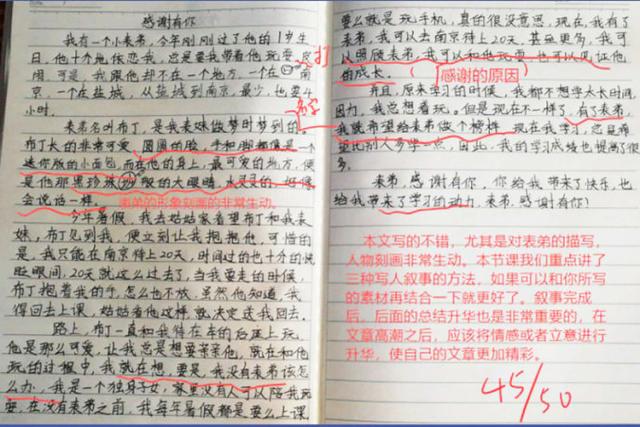 感谢有你
我有一个小表弟，今年刚刚过了他的1岁生
日，他十分地依恋我，总是要我带着他玩耍、
打
闹。可是，我跟他却不在一个地方，一个在
京，一个在盐城，从盐城到南京，最少，也要4
小时。
表弟名叫布丁，是我表妹做梦时梦到的。
布丁长的非常可爱，圆圆的脸，手和脚都像是一个
迷你版的小面包，而在他的身上，最可爱的地方，便
是他那黑珍珠般的大眼睛，水灵灵的，好像
会说话一样。
表弟的形象刻画的非常生动。
今年暑假，我去姑姑家看望布丁和我表
妹，布丁见到我，便立刻让我抱抱他，可惜的
是，我只能在南京待上20天，时间过的也十分的快
眨眼间，20天就这么过去了，当我要走的时候，
布丁抱着我的手，怎么也不放，虽然他知道，我
得回去上课，姑姑看他这样，就决定送我回去。
路上，布丁一直和我待在车的后座上玩，
他是那么可爱，让我总是想要亲亲他，就在和他
玩的过程中，我就在想，要是，我没有表弟该怎
么办，我是一个独身子女，家里没有人可以陪我玩
耍，在没有表弟之前，我每年暑假都是要么上课，
要么就是玩手机，真的很没意思，现在，我有了
表弟，我可以去南京待上20天，甚至更多，我可
以照顾表弟，我可以和他玩耍，也可以见证他
的成长。
感谢的原因
并且，原来学习的时候，我都不想学太长时间
因为，我总想着玩。但是现在不一样了，有了表弟，
我就希望给表弟做个榜样，现在我学习，总是希
望比别人多学一点，由此，我的学习成绩也提高了很
多。
表弟，感谢有你，你给我带来了快乐，也
给我带来了学习的动力，表弟，感谢有你！
本文写的不错，尤其是对表弟的描写，
人物刻画非常生动。本节课我们重点讲了
三种写人叙事的方法，如果可以和你所写
的素材再结合一下就更好了。叙事完成
后。后面的总结升华也是非常重要的，在
文章高潮之后，应该将情感或者立意进行
升华，使自己的文章更加精彩。
45/50